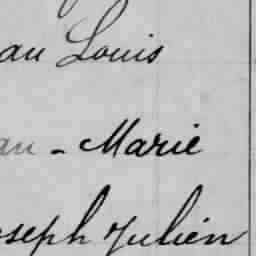 au Louis
an - Marie
oseph Julien